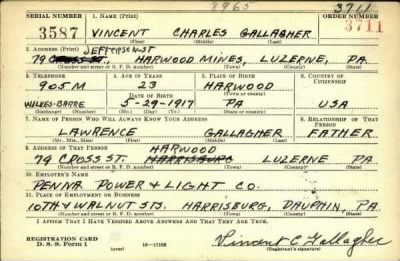 8965
3711
SERIAL NUMBER 1. NAME (Print) ORDER NUMBER
3587 VINCENT CHARLES GALLAGHER 3711
(First) (Middle) (Last)
2. ADDRESS (Print) JEFFERSON ST
79 CROSS ST. HARWOOD MINES, LUZERNE, PA.
(Number and street or R. F. D. number) (Town) (County) (State)
3. TELEPHONE 4. AGE IN YEARS 5. PLACE OF BIRTH 6. COUNTRY OF CITIZENSHIP
905M 23 HARWOOD
DATE OF BIRTH (Town or county)
WILKES-BARRE 5-29-1917 PA USA
(Exchange) (Number) (Mo.) (Day) (Yr.) (State or country)
7. NAME OF PERSON WHO WILL ALWAYS KNOW YOUR ADDRESS 8. RELATIONSHIP OF THAT PERSON
LAWRENCE GALLAGHER FATHER
(Mr., Mrs., Miss) (First) (Middle) (Last)
9. ADDRESS OF THAT PERSON HARWOOD
79 CROSS ST. HARRISBURG LUZERNE PA
(Number and street or R. F. D. number) (Town) (County) (State)
10. EMPLOYER'S NAME
PENNA POWER & LIGHT CO.
11. PLACE OF EMPLOYMENT OR BUSINESS
10TH & WALNUT STS. HARRISBURG, DAUPHIN, PA.
(Number and street or R. F. D. number) (Town) (County) (State)
I AFFIRM THAT I HAVE VERIFIED ABOVE ANSWERS AND THAT THEY ARE TRUE.
REGISTRATION CARD
D. S. S. Form 1 (over) 16-17105 Vincent C Gallagher
(Registrant's signature)